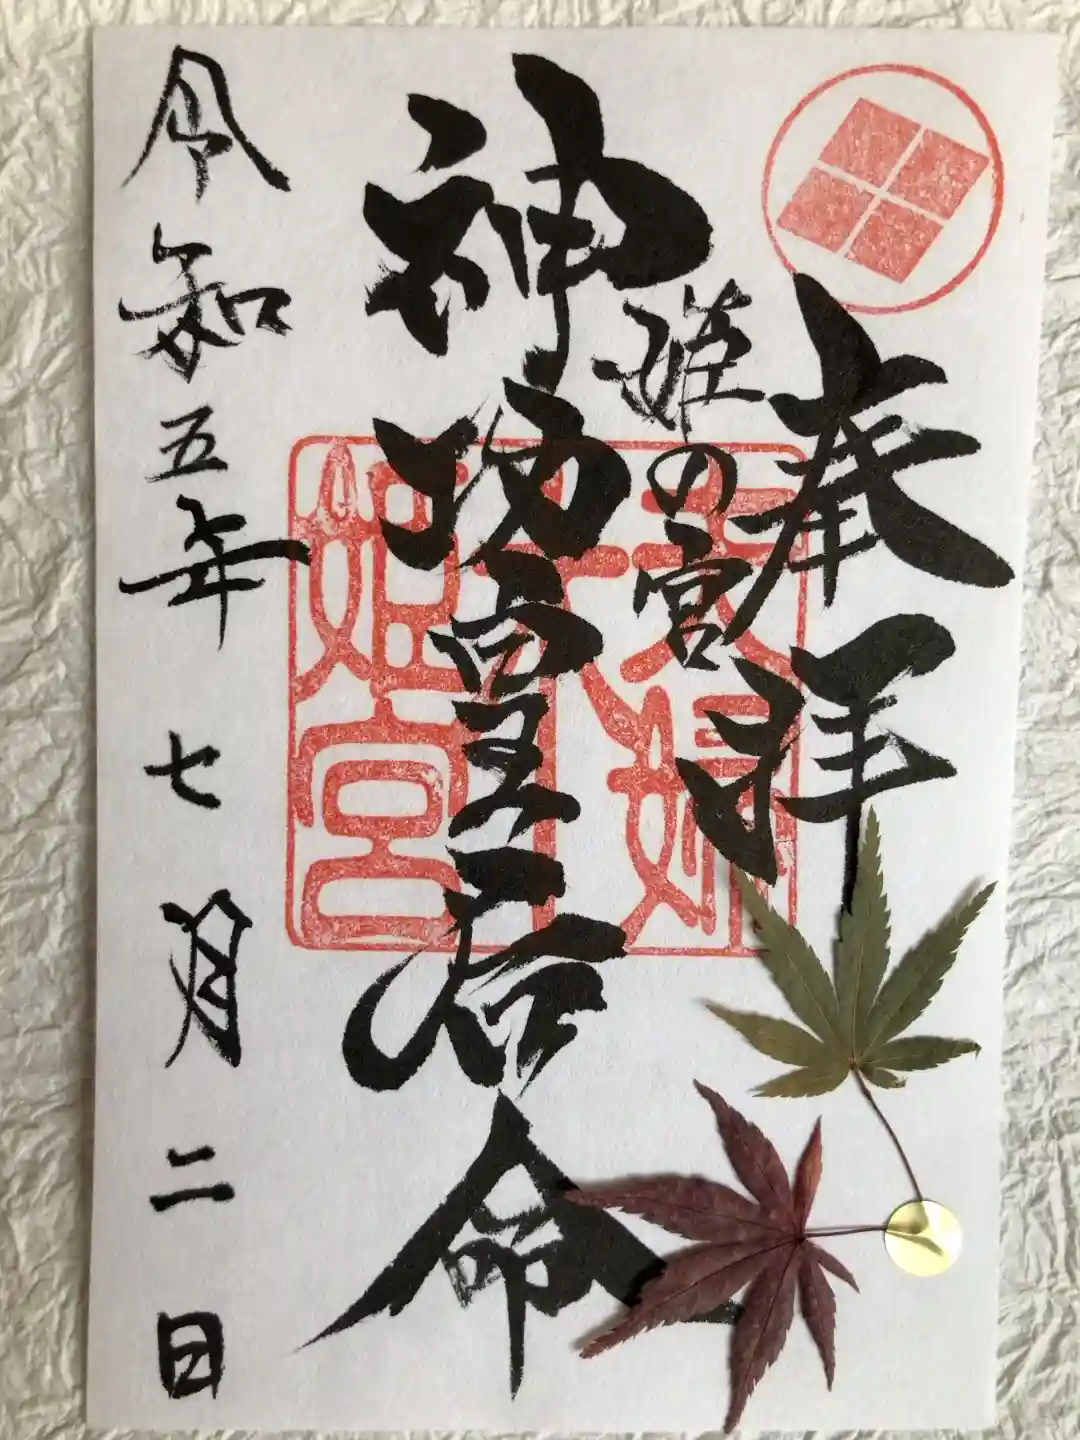 奉拝
姫の宮
神功皇后命
令和五年七月二日
姫宮